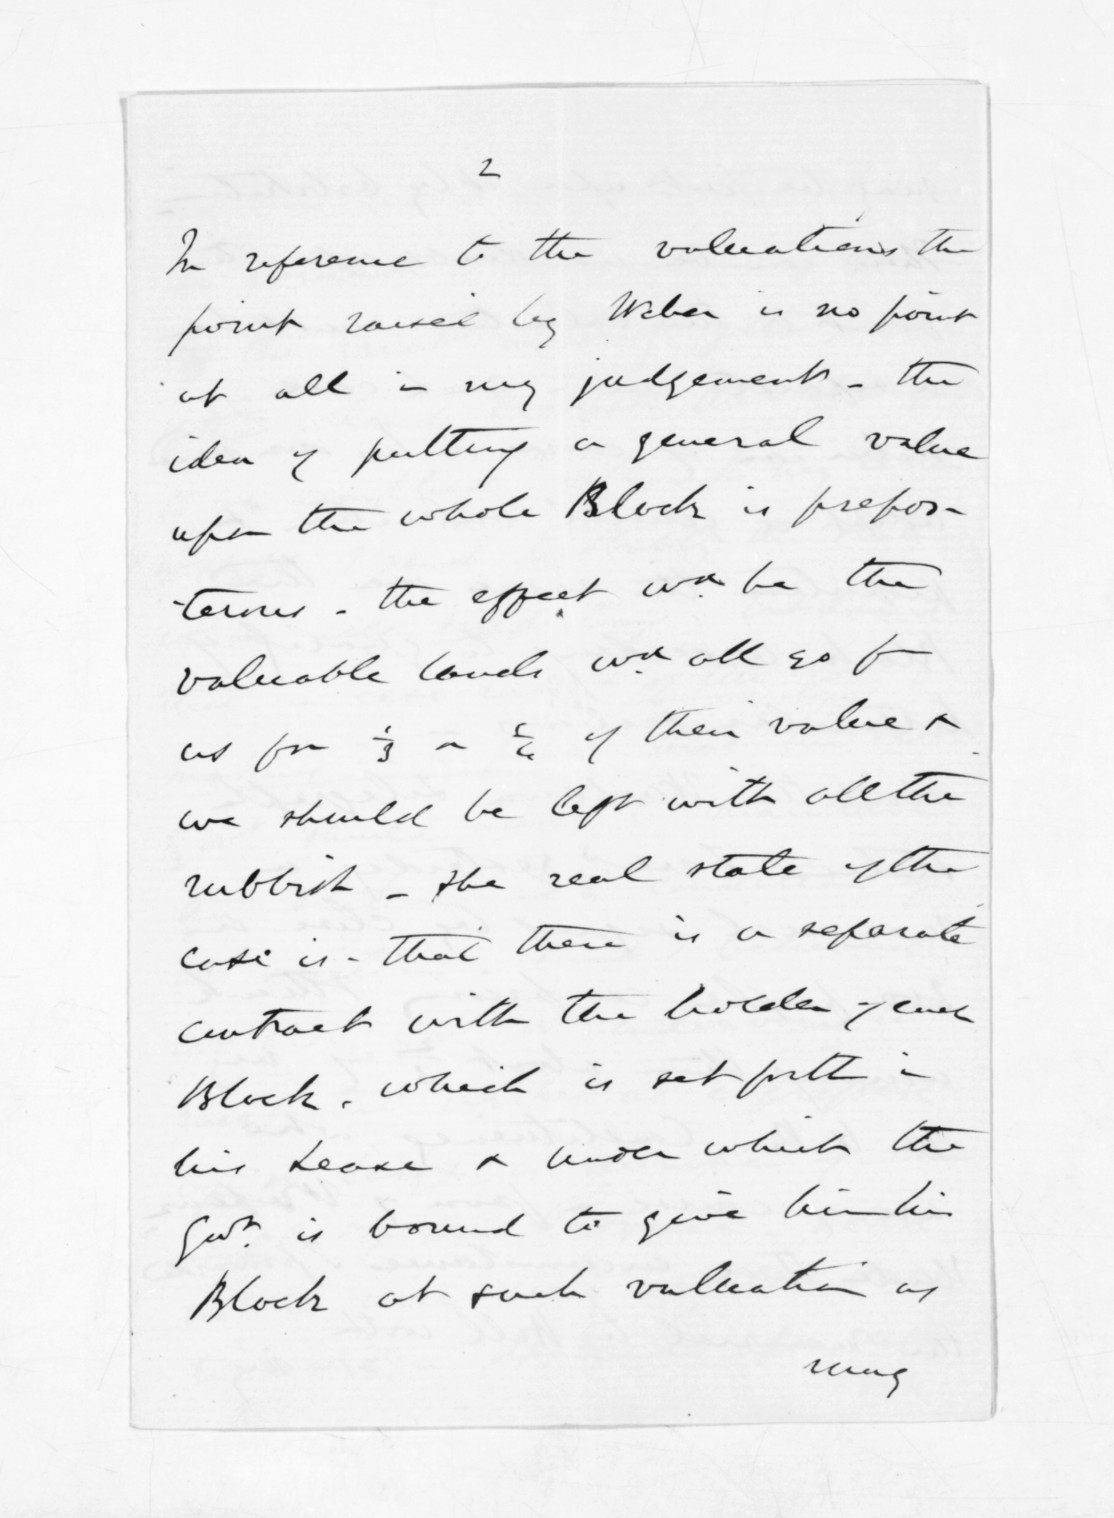 2
In reference to the valuations the
point raised by Weber is no point
at all in my judgement - the
idea of putting a general value
upon the whole Block is prepos-
terous - the effect wd. be the
valuable lands wd. all go fm
us for 1/3 or of their value &
we should be left with all the
rubbish - the real state of the
case is - that there is a separate
contract with the holder of each
Block, which is set forth in
his Lease & under which the
Govt. is bound to give him his
Block at such valuation as
may